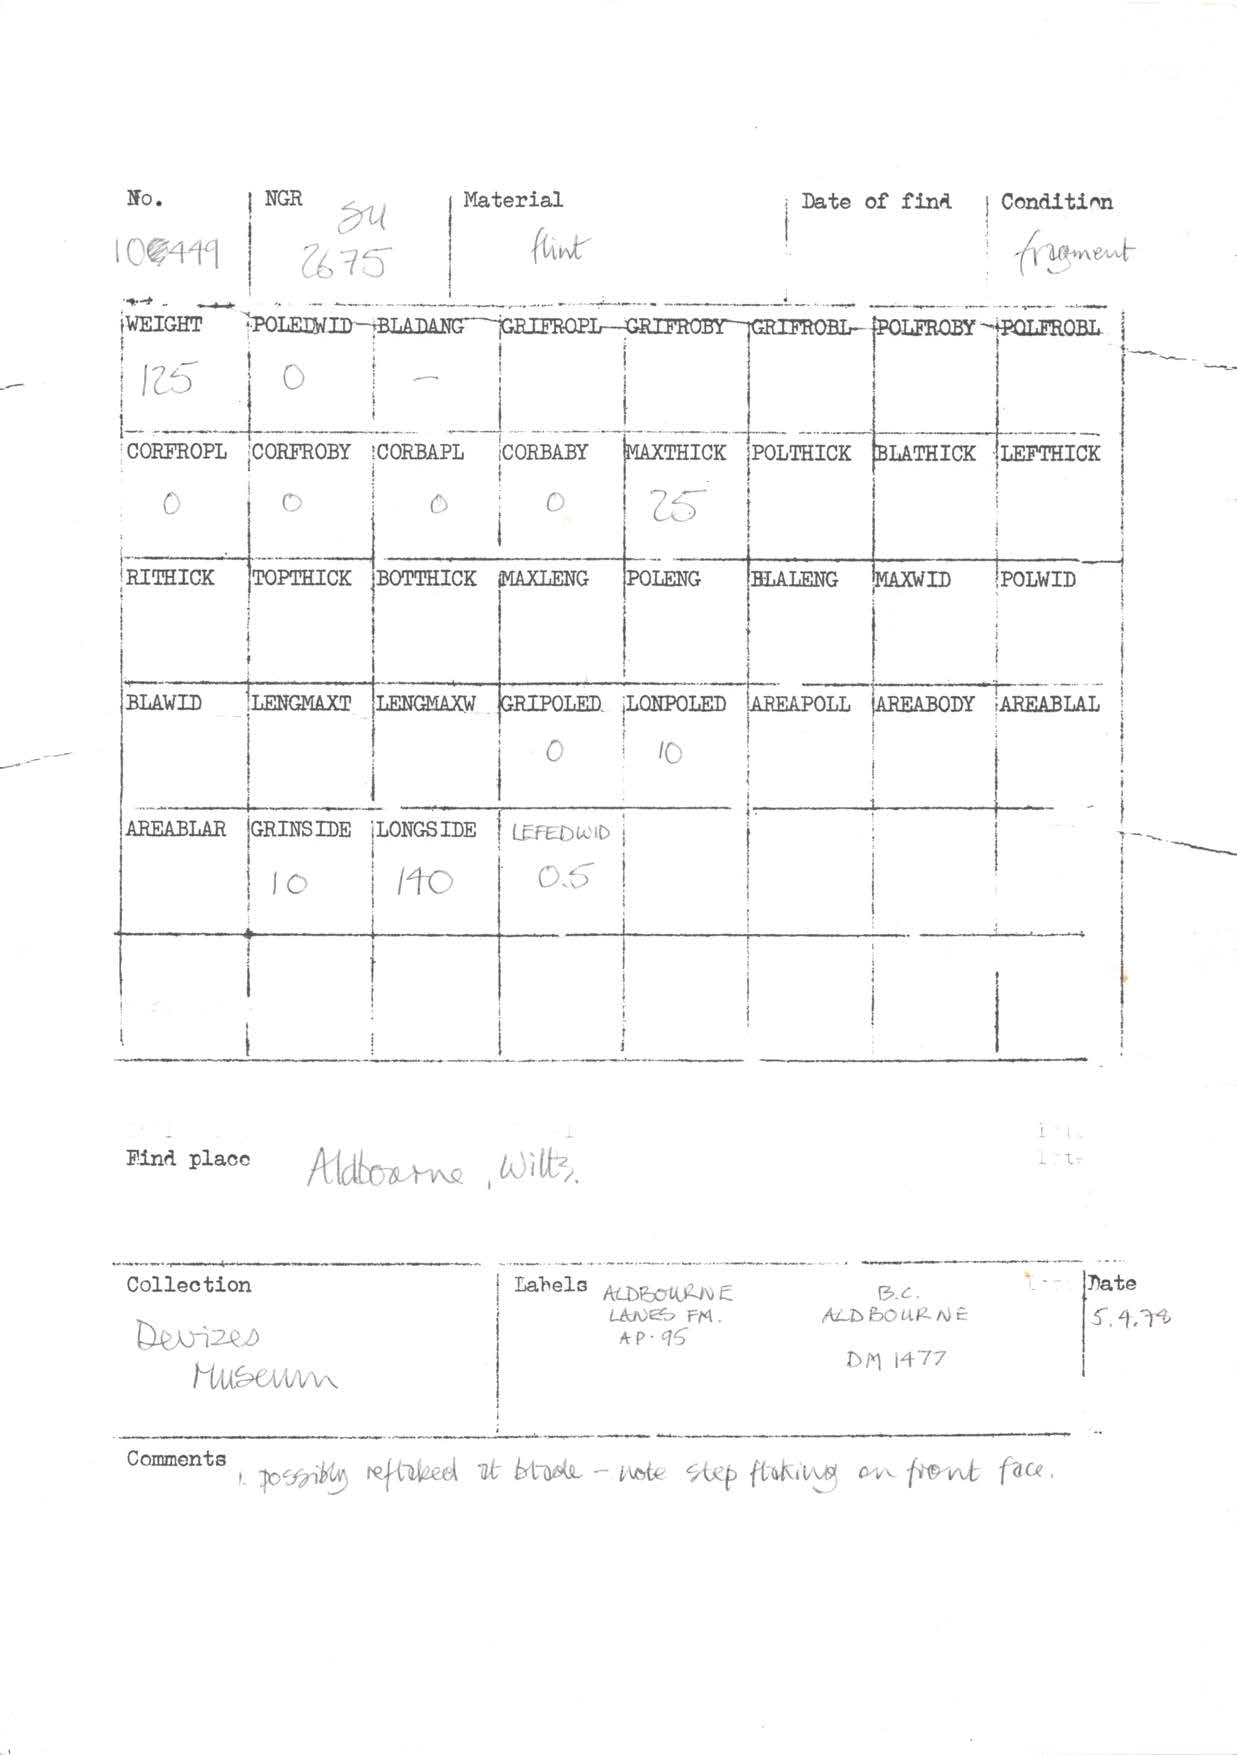 No. NGR Material Date of find Condition
SU
449 2675 flint fragment
WEIGHT POLEDWID BLADANG GRIFROPL GRIFROBY GRIFROBL POLFROBY POLFROBL
125 0 —
CORFROPL CORFROBY CORBAPL CORBABY MAXTHICK POLTHICK BLATHICK LEFTHICK
0 0 0 0 25
RITHICK TOPTHICK BOTTHICK MAXLENG POLENG BLALENG MAXWID POLWID
BLAWID LENGMAXT LENGMAXW GRIPOLED LONPOLED AREAPOLL AREABODY AREABLAL
0 10
AREABLAR GRINSIDE LONGSIDE LEFEDWID
10 140 0.5
Find place Aldbourne, Wilts.
Collection Labels ALDBOURNE B.C. Date
LANES FM. ALDBOURNE 5.4.78
Devizes AP.95
Museum DM 1477
Comments 1. possibly reflaked at blade – note step flaking on front face.